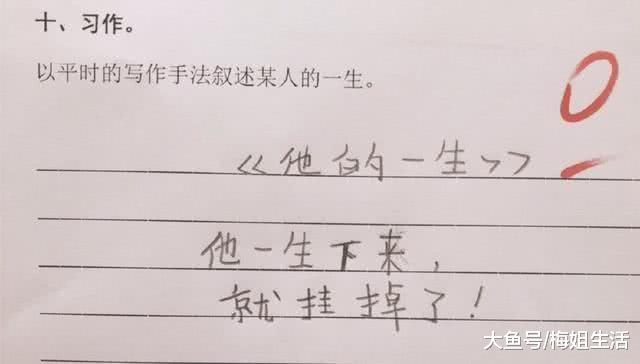 十、习作。
以平时的写作手法叙述某人的一生。
0
《他的一生》
他一生下来，
就挂掉了！
大鱼号/梅姐生活